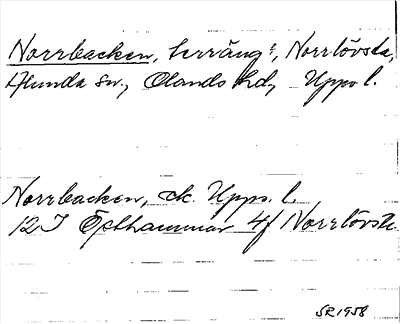 Norrbacken, terräng:, Norrlövsta,
Hunda sn, Olands hd, Upps l.
Norrbacken, ek. Upps. l.
12 I Östhammar 4f Norrlövsta
SR 1958